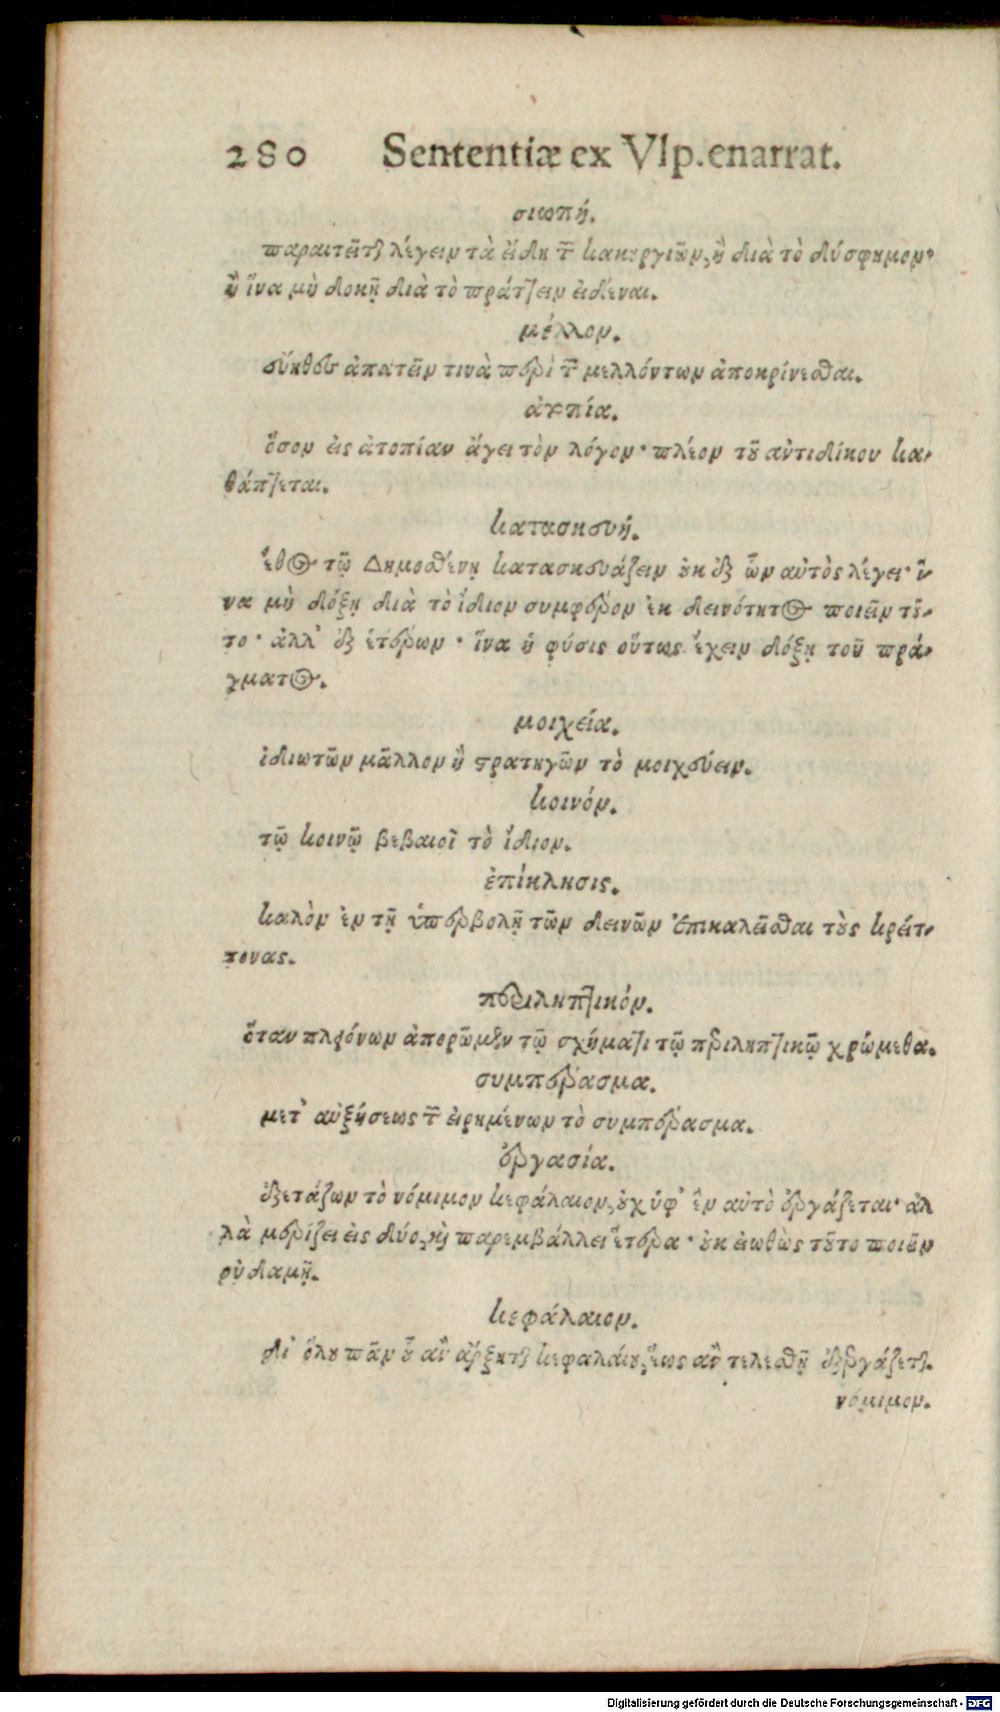 280 Sententiæ ex Vlp. enarrat.
σιωπή.
παραιτεῖται λέγειν τὰ εἴδη τῶν κακουργιῶν, ἢ διὰ τὸ δύσφημον·
ἢ ἵνα μὴ δοκῇ διὰ τὸ πράττειν εἰδέναι.
μέλλον.
εὔηθες ἀπατεῖν τινὰ περὶ τῶν μελλόντων ἀποκρίνεσθαι.
ἀτοπία.
ὅσον εἰς ἀτοπίαν ἄγει τὸν λόγον· πλέον τοῦ ἀντιδίκου κα-
θάπτεται.
κατασκευή.
ἔθος τῷ Δημοσθένῃ κατασκευάζειν οὐκ ἐξ ὧν αὐτὸς λέγει· ἵ-
να μὴ δόξῃ διὰ τὸ ἴδιον συμφέρον ἐκ δεινότητος ποιεῖν τοῦ-
το· ἀλλ' ἐξ ἑτέρων· ἵνα ἡ φύσις οὕτως ἔχειν δόξῃ τοῦ πρά-
γματος.
μοιχεία.
ἰδιωτῶν μᾶλλον ἢ στρατηγῶν τὸ μοιχεύειν.
κοινόν.
τῷ κοινῷ βεβαιοῖ τὸ ἴδιον.
ἐπίκλησις.
καλὸν ἐν τῇ ὑπερβολῇ τῶν δεινῶν ἐπικαλεῖσθαι τοὺς κρείτ-
τονας.
περιληπτικόν.
ὅταν πλειόνων ἀπορῶμεν τῷ σχήματι τῷ περιληπτικῷ χρώμεθα.
συμπέρασμα.
μετ' αὐξήσεως τῶν εἰρημένων τὸ συμπέρασμα.
ἐργασία.
ἐξετάζων τὸ νόμιμον κεφάλαιον, οὐχ ὑφ' ἓν αὐτὸ ἐργάζεται· ἀλ
λὰ μερίζει εἰς δύο, καὶ παρεμβάλλει ἕτερα· οὐκ εἰωθὼς τοῦτο ποιεῖν
οὐδαμῇ.
κεφάλαιον.
δι' ὅλου πᾶν οὗ ἂν ἄρξηται κεφαλαίου, ἕως ἂν τελεσθῇ ἐξεργάζεται.
νόμιμον.
Digitalisierung gefördert durch die Deutsche Forschungsgemeinschaft - DFG